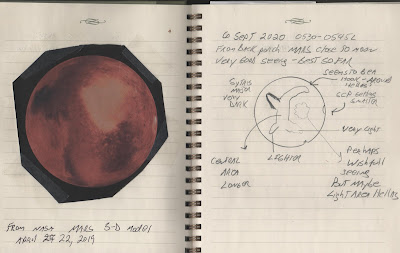 FROM NASA MARS 3-D MODEL
APRIL 22, 2019
6 SEPT 2020 0530-0545L
From Back porch MARS Close TO MOON
Very Good seeing - BEST SO FAR
SEEMS TO BE A
HOOK - AROUND
HELLAS?
SYRTIS
MAJOR
VERY
DARK
SCP Getting
smaller
Very light
CENTRAL
AREA
LONGER
LIGHTER
PERHAPS
Wishful
seeing
But Maybe
Light AREA Hellas